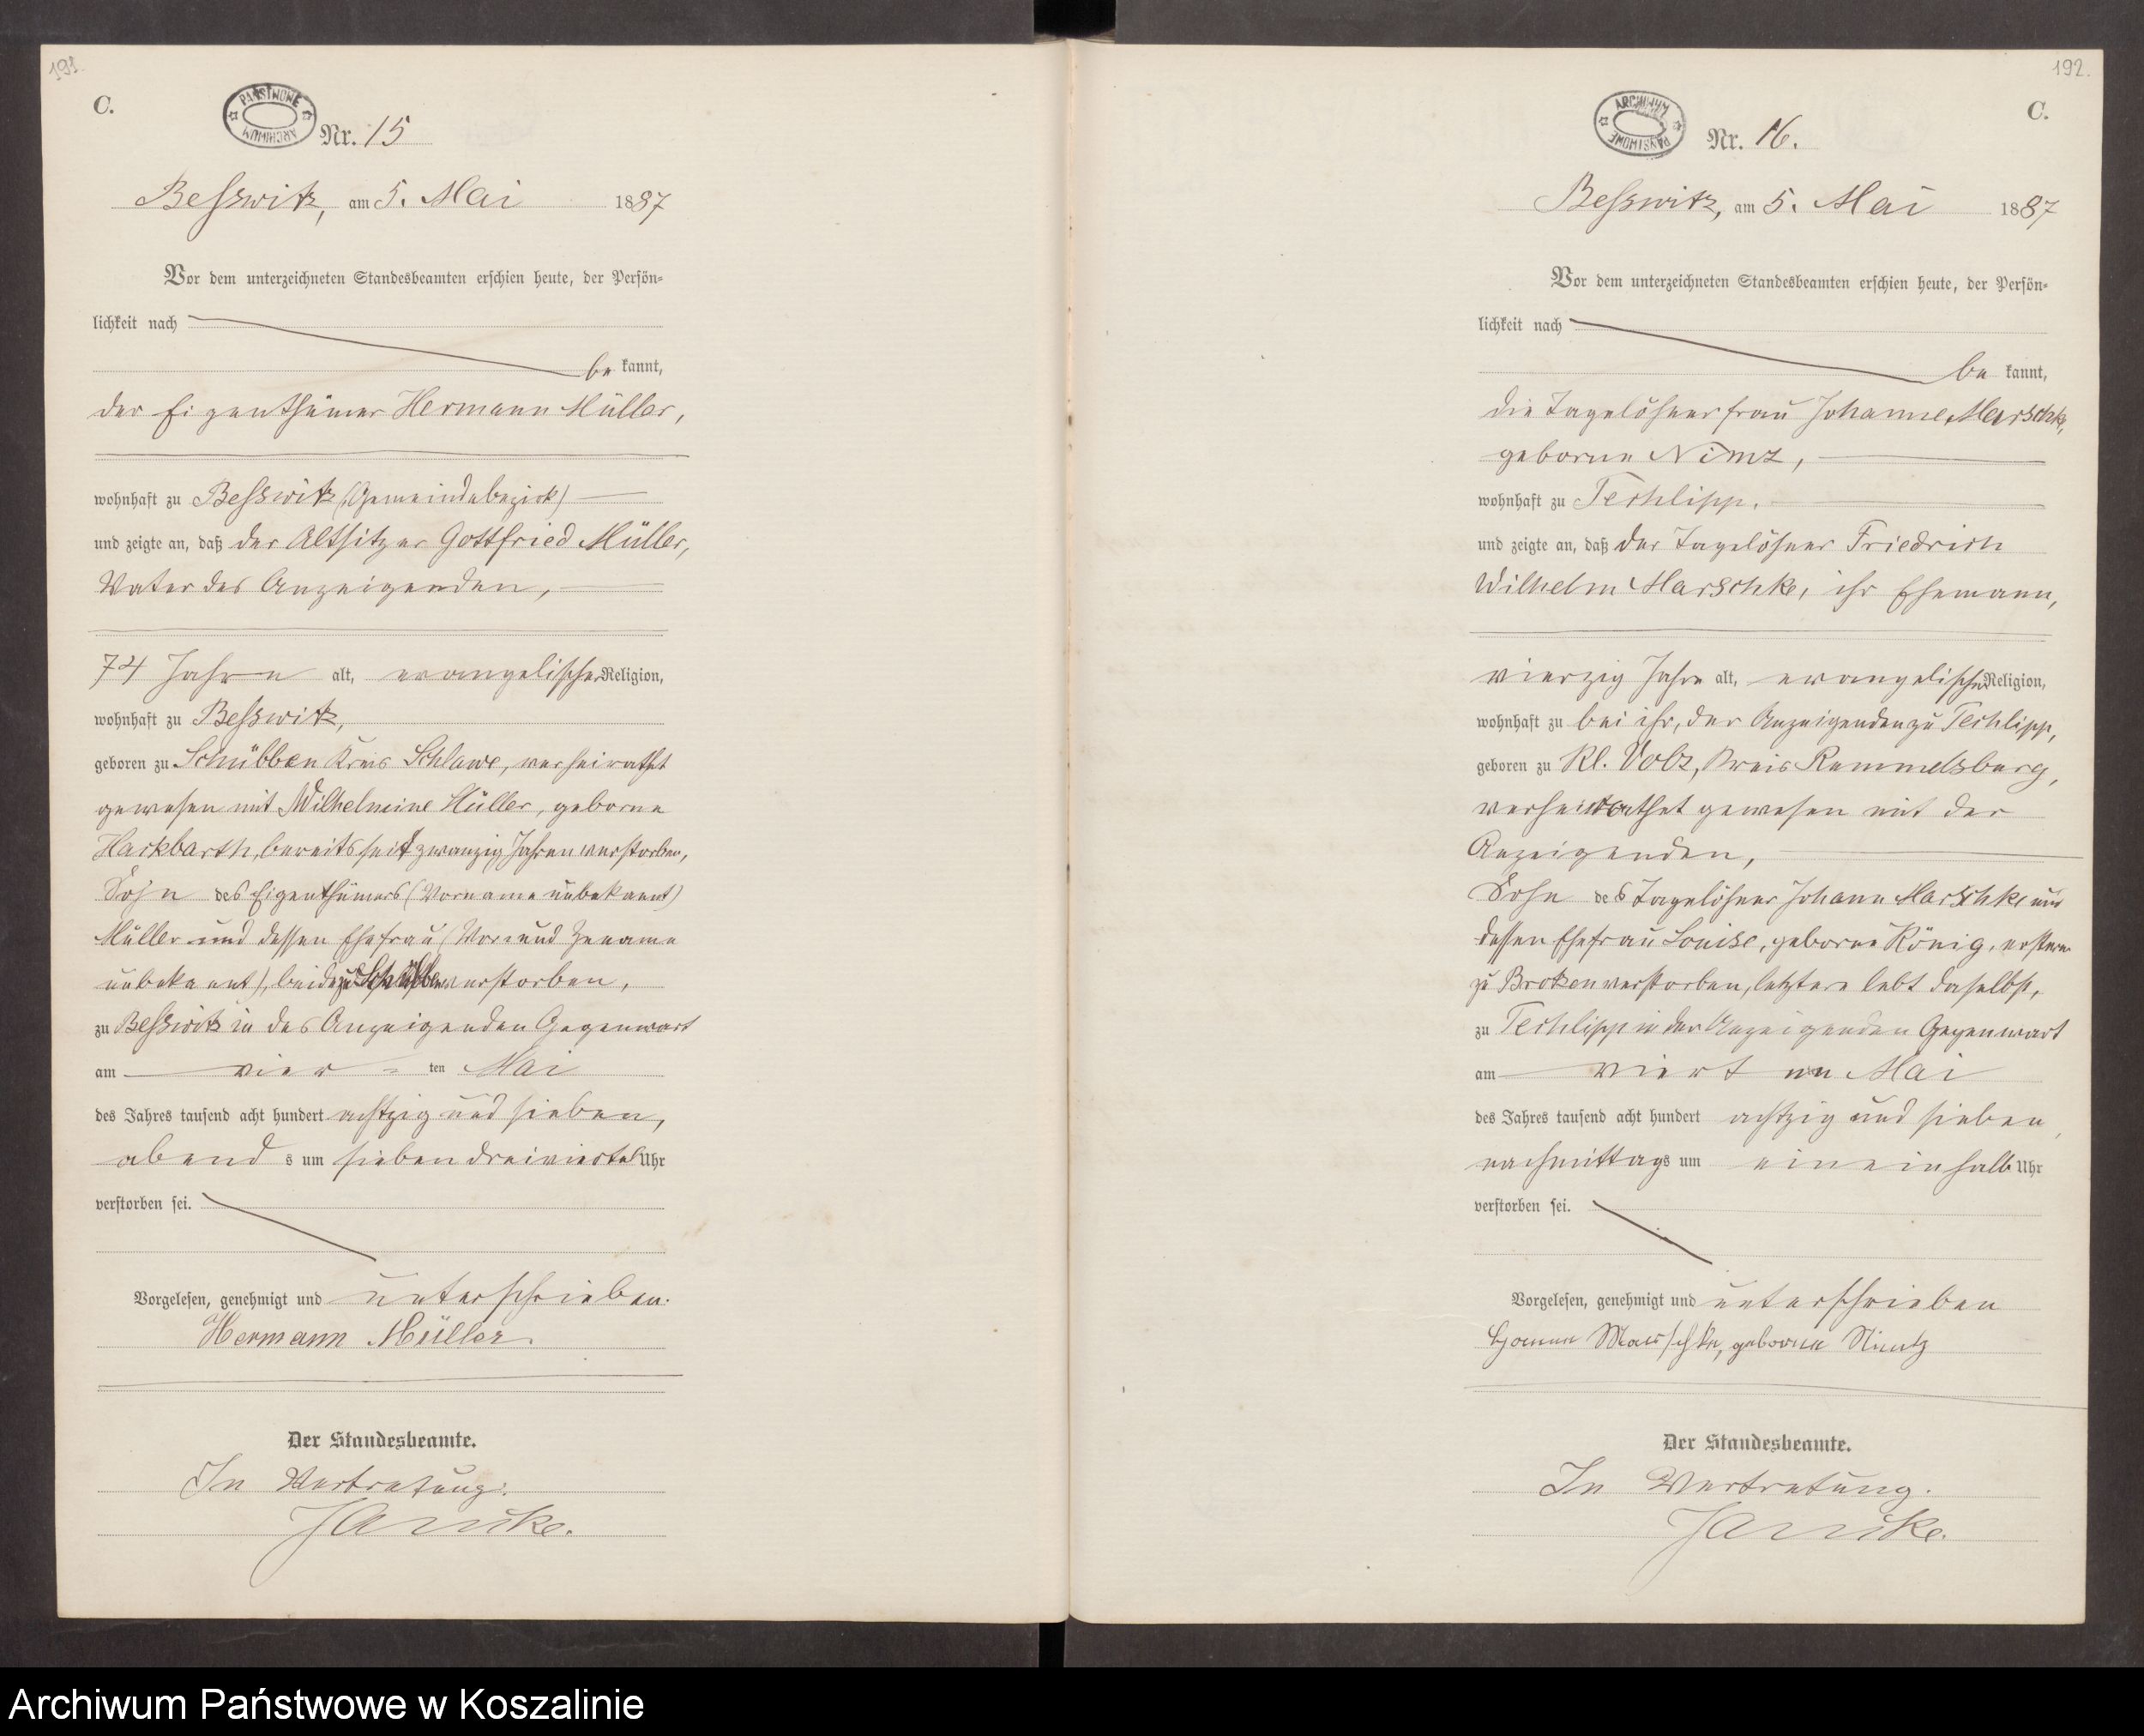 191.
C.
PAŃSTWOWE ARCHIWUM
Nr. 15
Besswitz, am 5. Mai 1887
Vor dem unterzeichneten Standesbeamten erschien heute, der Persön-
lichkeit nach
be kannt,
der Eigenthümer Hermann Müller,
wohnhaft zu Besswitz (Gemeindebezirk)
und zeigte an, daß der Altsitzer Gottfried Müller,
Vater des Anzeigenden,
74 Jahre alt, evangelischer Religion,
wohnhaft zu Besswitz,
geboren zu Schübben Kreis Schlawe, verheirathet
gewesen mit Wilhelmine Müller, geborne
Hackbarth, bereits seit zwanzig Jahren verstorben,
Sohn des Eigenthümers (Vorname unbekannt)
Müller und dessen Ehefrau (Vor- und Zuname
unbekannt), beide zu Schübben verstorben,
zu Besswitz in des Anzeigenden Gegenwart
am vier- ten Mai
des Jahres tausend acht hundert achtzig und sieben,
abend s um sieben dreiviertel Uhr
verstorben sei.
Vorgelesen, genehmigt und unterschrieben.
Hermann Müller.
Der Standesbeamte.
In Vertretung.
192.
C.
ARCHIWUM PAŃSTWOWE
Nr. 16.
Besswitz, am 5. Mai 1887
Vor dem unterzeichneten Standesbeamten erschien heute, der Persön-
lichkeit nach
be kannt,
die Tagelöhnerfrau Johanne Marschke,
geborne Nimz,
wohnhaft zu Techlipp.
und zeigte an, daß der Tagelöhner Friedrich
Wilhelm Marschke, ihr Ehemann,
vierzig Jahre alt, evangelischer Religion,
wohnhaft zu bei ihr, der Anzeigenden zu Techlipp,
geboren zu Kl. Volz, Kreis Rummelsburg,
verheirathet gewesen mit der
Anzeigenden,
Sohn des Tagelöhner Johann Marschke und
dessen Ehefrau Louise, geborne König, ersterer
zu Brotzen verstorben, letztere lebt daselbst,
zu Techlipp in der Anzeigenden Gegenwart
am vierten Mai
des Jahres tausend acht hundert achtzig und sieben,
nachmittags um eineinhalb Uhr
verstorben sei.
Vorgelesen, genehmigt und unterschrieben
Marschke, geborne Nimtz
Der Standesbeamte.
In Vertretung.
Archiwum Państwowe w Koszalinie